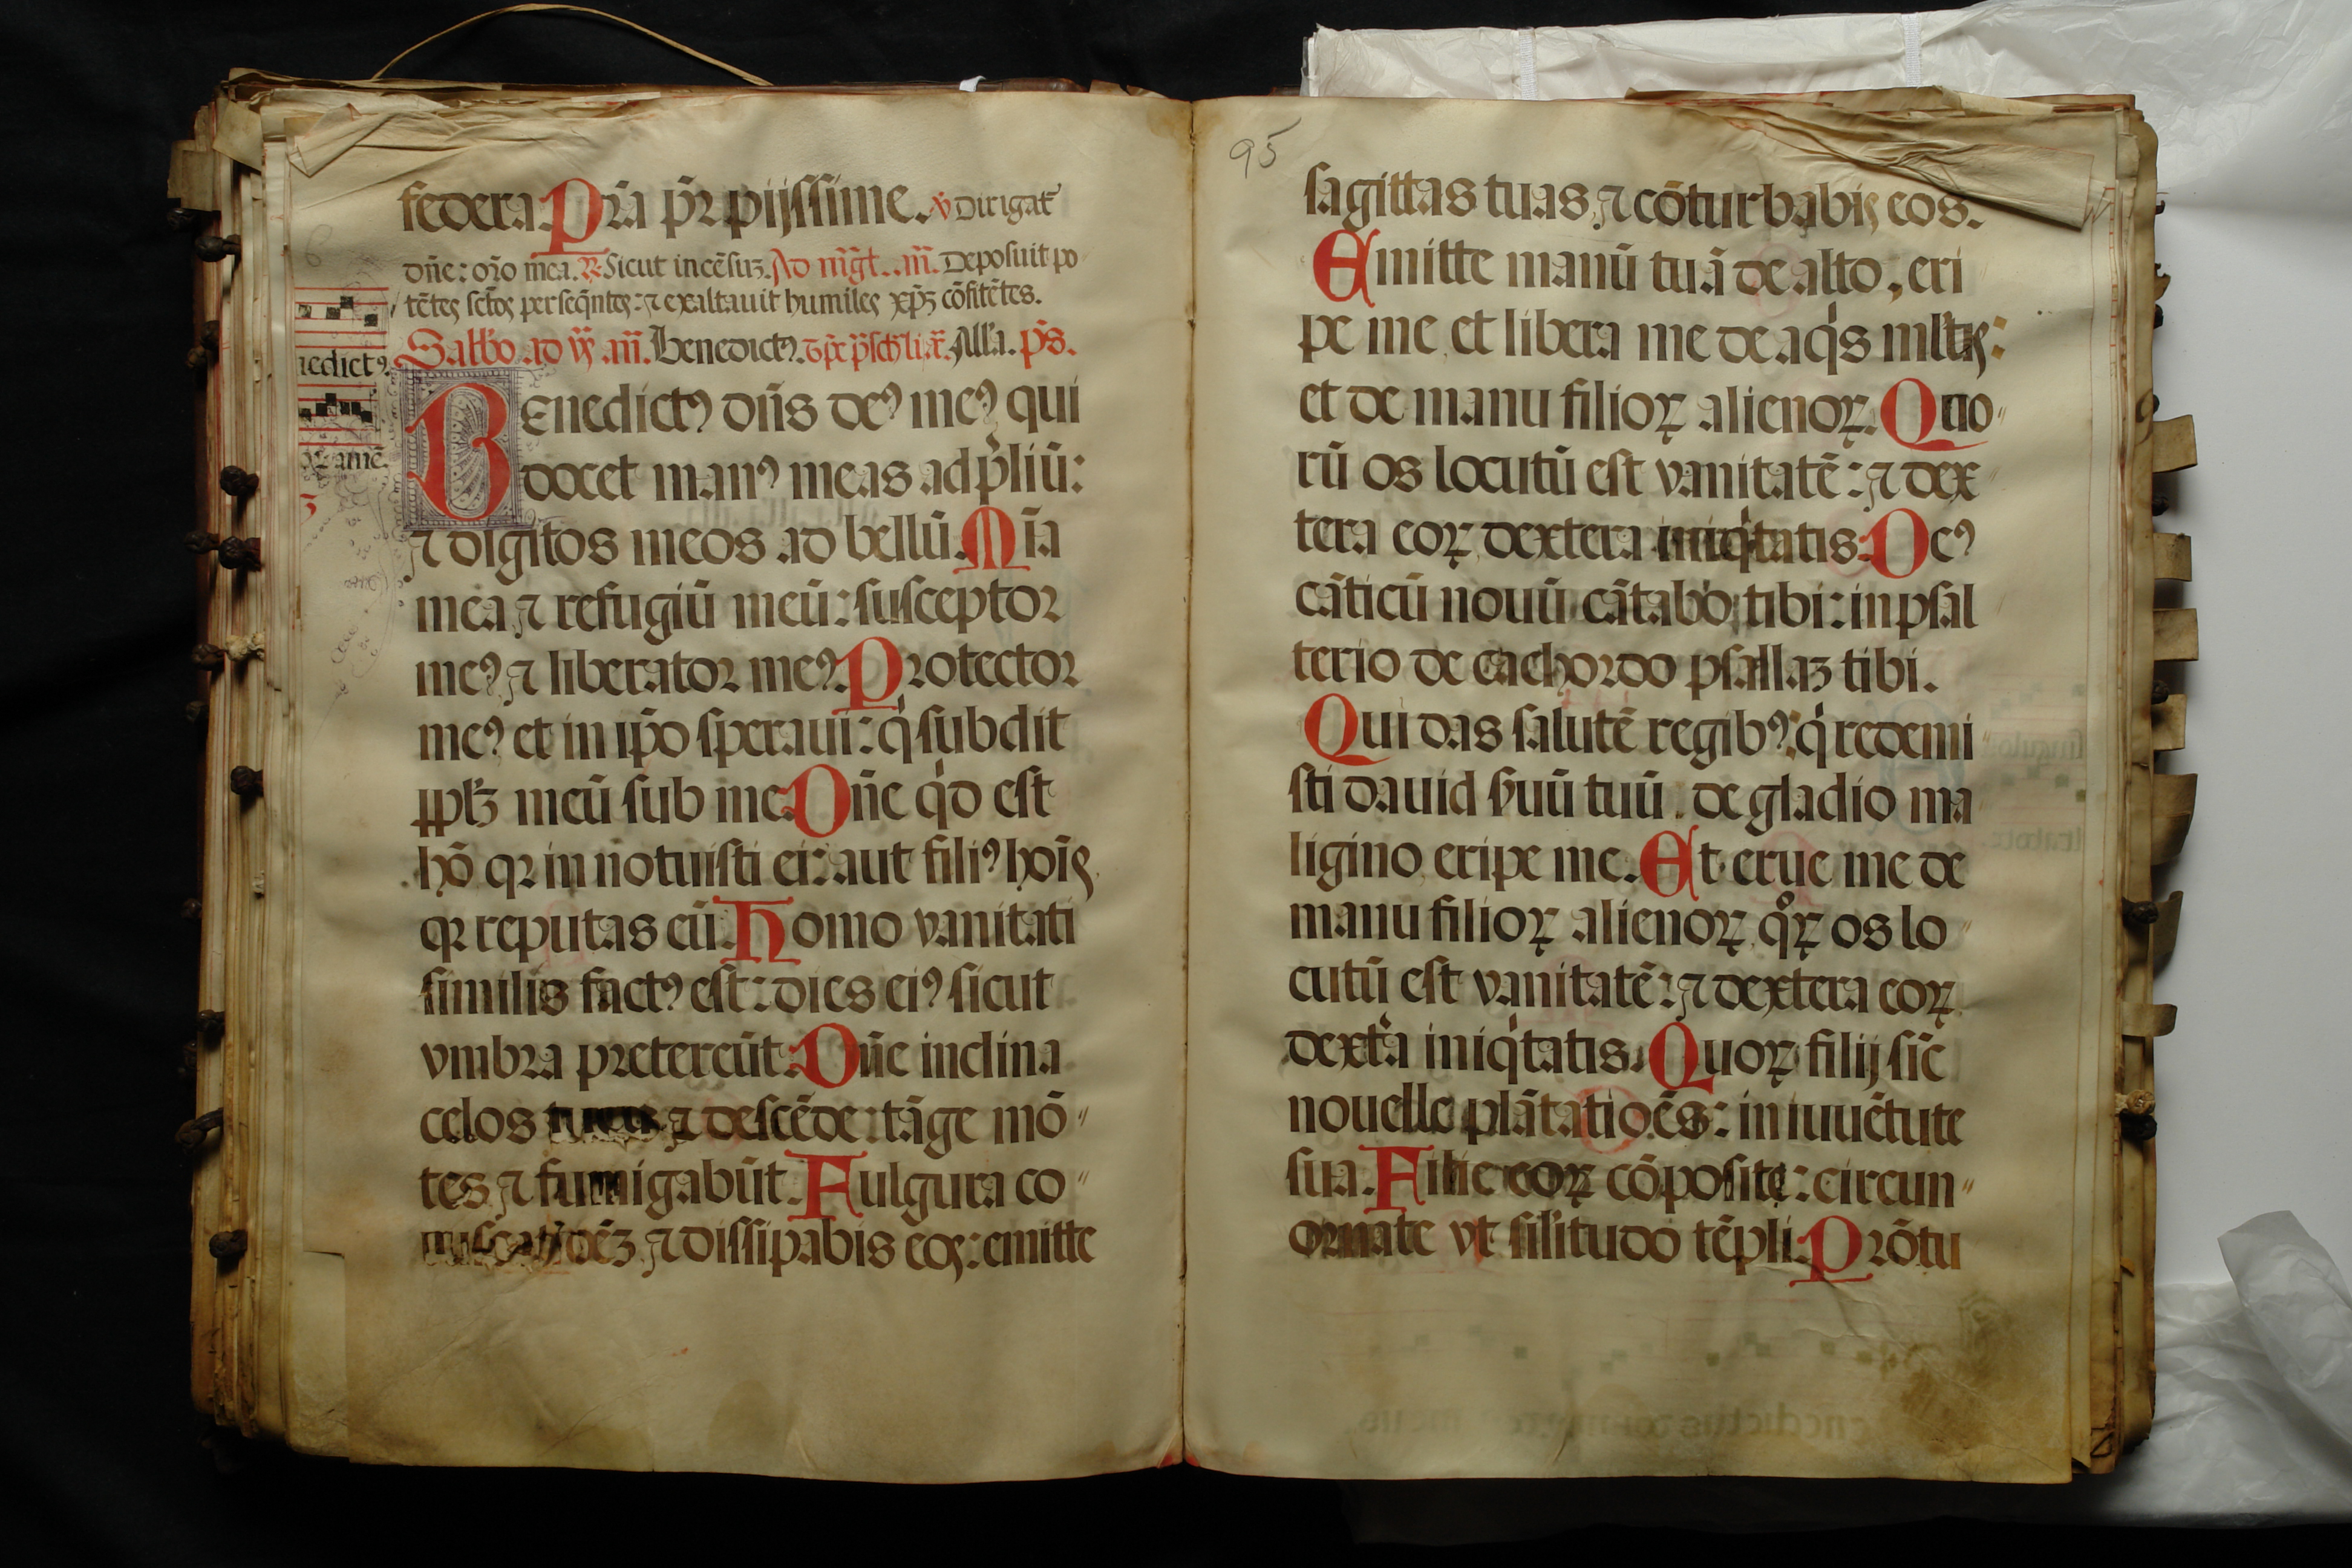 federa. Pr̄a pr̄ pijſſime. ℣ Dirigat᷑
dn̄e: or̄o mea. ℟. Sicut incēſuꝫ. Ad mḡt. an̄. Depoſuit po
tētes ſctōs perſeq̄ntes: ⁊ exaltauit humiles xp̄ꝫ cōfitētes.
Sabbo. ad
an̄. Benedictꝰ.
Alla. pš.
Benedictꝰ dn̄s deꝰ meꝰ qui
docet manꝰ meas ad p̄liū:
⁊ digitos meos ad bellū. Mīa
mea ⁊ refugiū meū: ſuſceptoꝛ
meꝰ ⁊ liberatoꝛ meꝰ. Protectoꝛ
meꝰ et in ip̄o ſperaui: qͥ ſubdit
pp̄lꝫ meū ſub me. Dn̄e qͥd eſt
hō qꝛ in notuiſti ei: aut filiꝰ hoīs
qꝛ reputas eū. Homo vanitati
ſimilis factꝰ eſt: dies eiꝰ ſicut
vmbra pretereūt. Dn̄e inclina
celos tuos ⁊ deſcēde: tāge mō〃
tes ⁊ fumigabūt. Fulgura co〃
⁊ diſſipabis eos: emitte
nedictꝰ.
amē.
95
ſagittas tuas, ⁊ cōturbabis eos.
Emitte manū tuā de alto, eri
pe me, et libera me de aqͥs mltis:
et de manu filioꝝ alienoꝝ. Quo〃
rū os locutū eſt vanitatē: ⁊ dex〃
tera eoꝝ dextera iniqͥtatis. Deꝰ
cāticū nouū cātabo tibi: in pſal
terio decachoꝛdo pſallaꝫ tibi.
Qui das ſalutē regibꝰ: qͥ redemi〃
ſti dauid ſuū tuū. de gladio ma
ligino eripe me. Et erue me de
manu filioꝝ alienoꝝ, qͦꝝ os lo〃
cutū eſt vanitatē: ⁊ dextera eoꝝ
dext̾a iniqͥtatis. Quoꝝ filij ſic̄
nouelle plātatioēs: in iuuētute
ſua. Filie eoꝝ cōpoſite: circun〃
oꝛnate vt ſilitudo tēpli. Prōtu